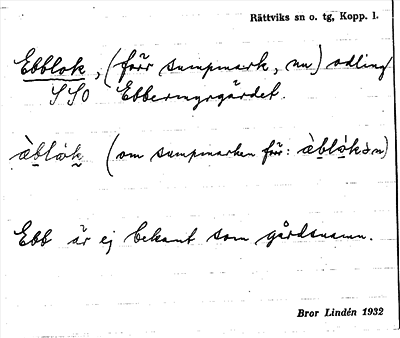 Rättviks sn o. tg, Kopp. l.
Ebblok, (förr sumpmark, nu) odling
SSO Ebbermyrgärdet.
àb̲lòk̲ (om sumpmarken förr: àb̲lò̲kən)
Ebb är ej bekant som gårdsnamn.
Bror Lindén 1932